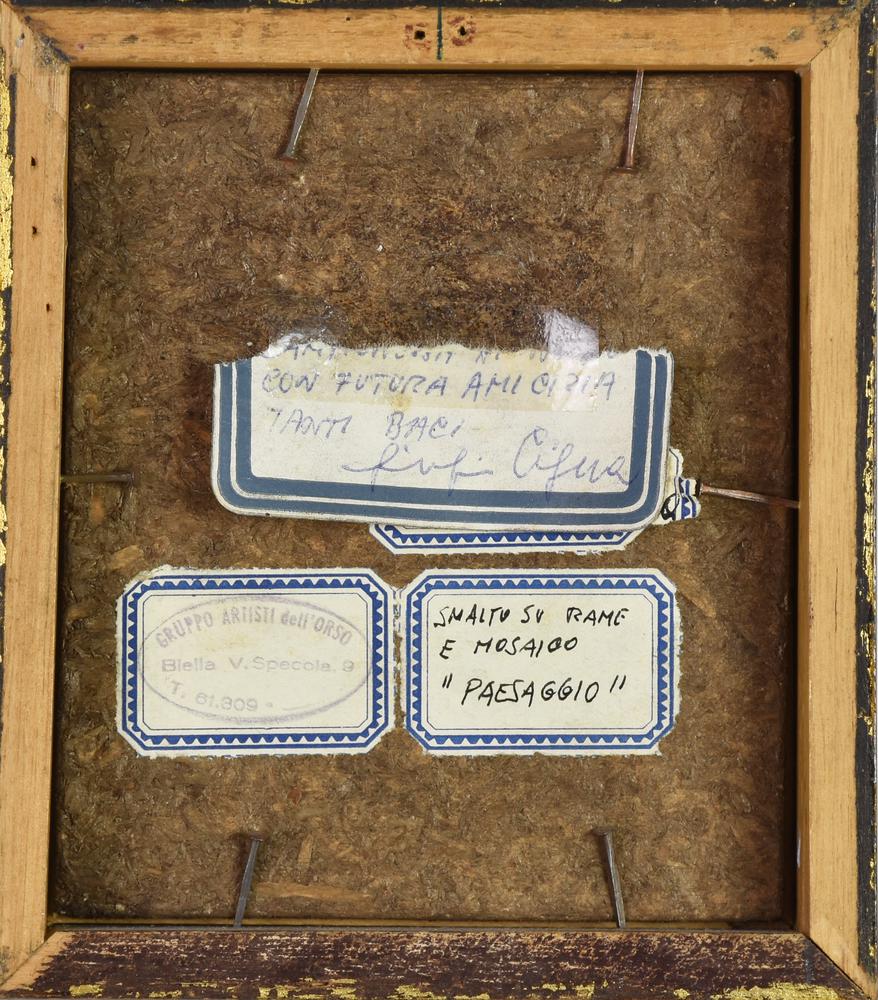 CON FUTURA AMICIZIA
TANTI BACI
GRUPPO ARTISTI dell'ORSO
Biella V. Specola. 9
T. 61.309
SMALTO SU RAME
E MOSAICO
"PAESAGGIO"